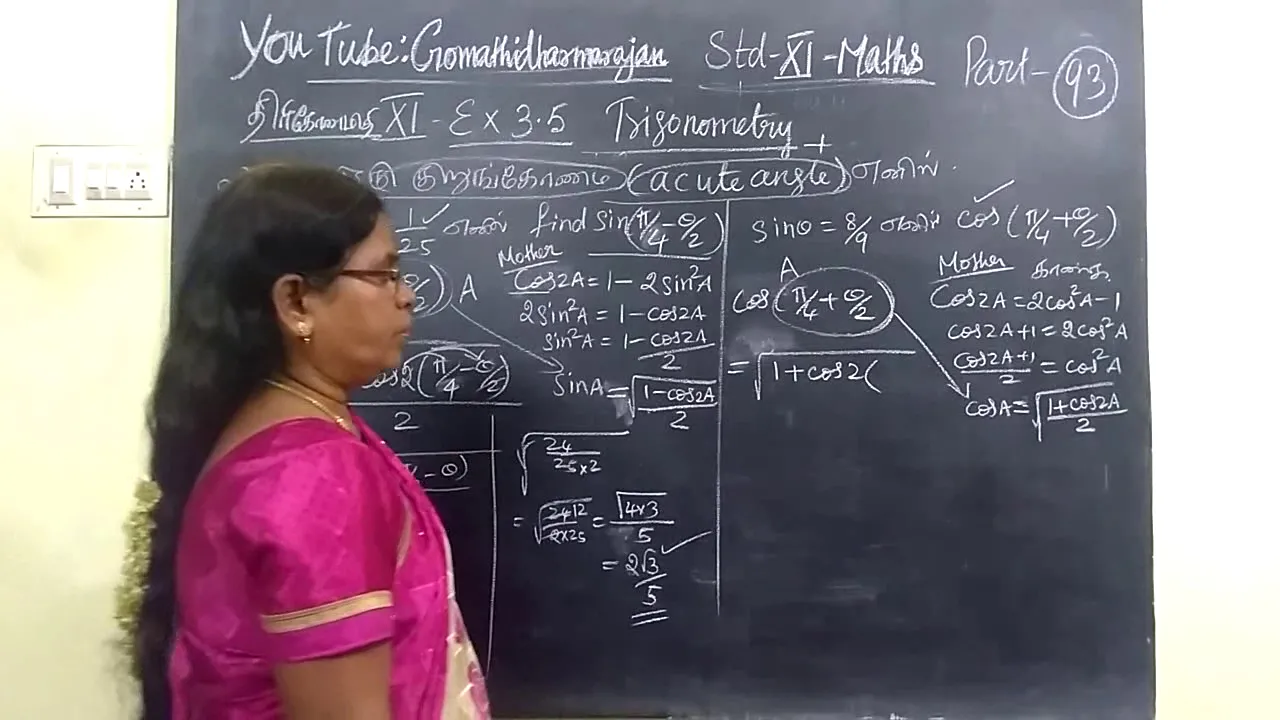 YouTube: Gomathidharmarajan Std-XI-Maths Part-93
XI - Ex 3.5 Trigonometry
குறுங்கோணம் (acute angle) எனில்.
1/25 எனில் find sin(π/4 - θ/2)
θ/2) A
cos2(π/4 - θ/2)
2
- θ)
Mother
Cos2A = 1 - 2sin²A
2sin²A = 1 - cos2A
sin²A = 1 - cos2A/2
sinA = √(1-cos2A/2)
√(24/25×2)
= √(24 12/2×25) = √4×3/5
= 2√3/5
sinθ = 8/9 எனில் cos(π/4 + θ/2)
காண்க.
A
cos(π/4 + θ/2)
= √1+cos2(
Mother
Cos2A = 2cos²A - 1
cos2A+1 = 2cos²A
cos2A+1/2 = cos²A
cosA = √(1+cos2A/2)